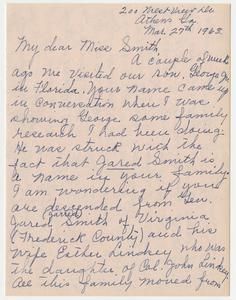 Athens Ga.
Mar. 27th 1963
My dear Miss Smith,
A couple of weeks
ago we visited our son, George Jr
in Florida. Your name came up
in conversation when I was
showing George some family
research I had been doing.
He was struck with the
fact that Jared Smith is
a name in your family.
I am wondering if you
are descended from Gen.
(Jarrid)
Jared Smith of Virginia
(Frederick County) and his
wife Esther Lindsey who was
the daughter of Col. John Lindsey
All this family moved from